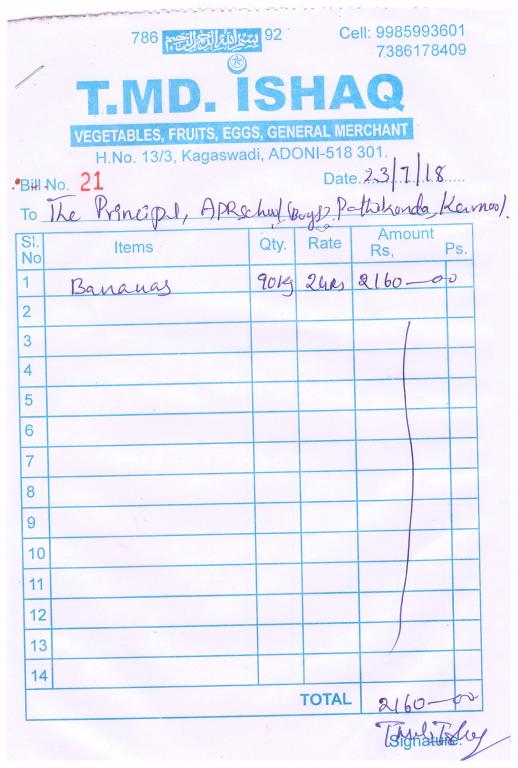 786 92 Cell: 9985993601
7386178409
T.MD. ISHAQ
VEGETABLES, FRUITS, EGGS, GENERAL MERCHANT
H.No. 13/3, Kagaswadi, ADONI-518 301.
Bill No. 21 Date 23/7/18
To The Principal, APRSchool (Boys), Kurnool.
Sl. No Items Qty. Rate Amount Rs, Ps.
1 Bananas 90kg 24Rs 2160-00
2
3
4
5
6
7
8
9
10
11
12
13
14
TOTAL 2160-00
Signature.